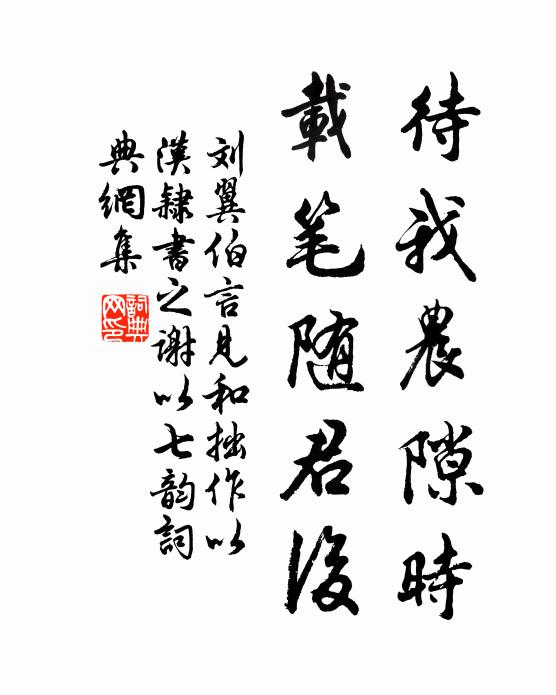 待我農隙時
載笔随君後
刘翼伯言見和拙作以
漢隸書之謝以七韵詞
典網集
詞典
网印